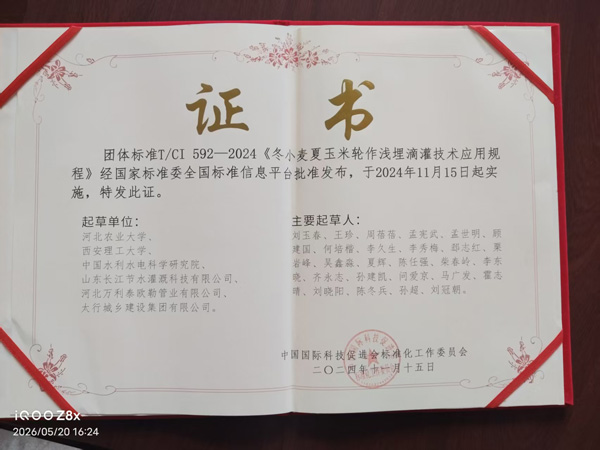 证 书
团体标准T/CI 592—2024《冬小麦夏玉米轮作浅埋滴灌技术应用规
程》经国家标准委全国标准信息平台批准发布，于2024年11月15日起实
施，特发此证。
起草单位：
河北农业大学、
西安理工大学、
中国水利水电科学研究院、
山东长江节水灌溉科技有限公司、
河北万利泰欧勒管业有限公司、
太行城乡建设集团有限公司。
主要起草人：
刘玉春、王珍、周蓓蓓、孟宪武、孟世明、顾
建国、何培楷、李久生、李秀梅、郜志红、栗
岩峰、吴鑫淼、夏辉、陈任强、柴春岭、李东
晓、齐永志、孙建凯、问爱京、马广发、霍志
晴、刘晓阳、陈冬兵、孙超、刘冠朝。
中国国际科技促进会标准化工作委员会
二〇二四年十一月十五日
iQOO Z8x
2026/05/20 16:24